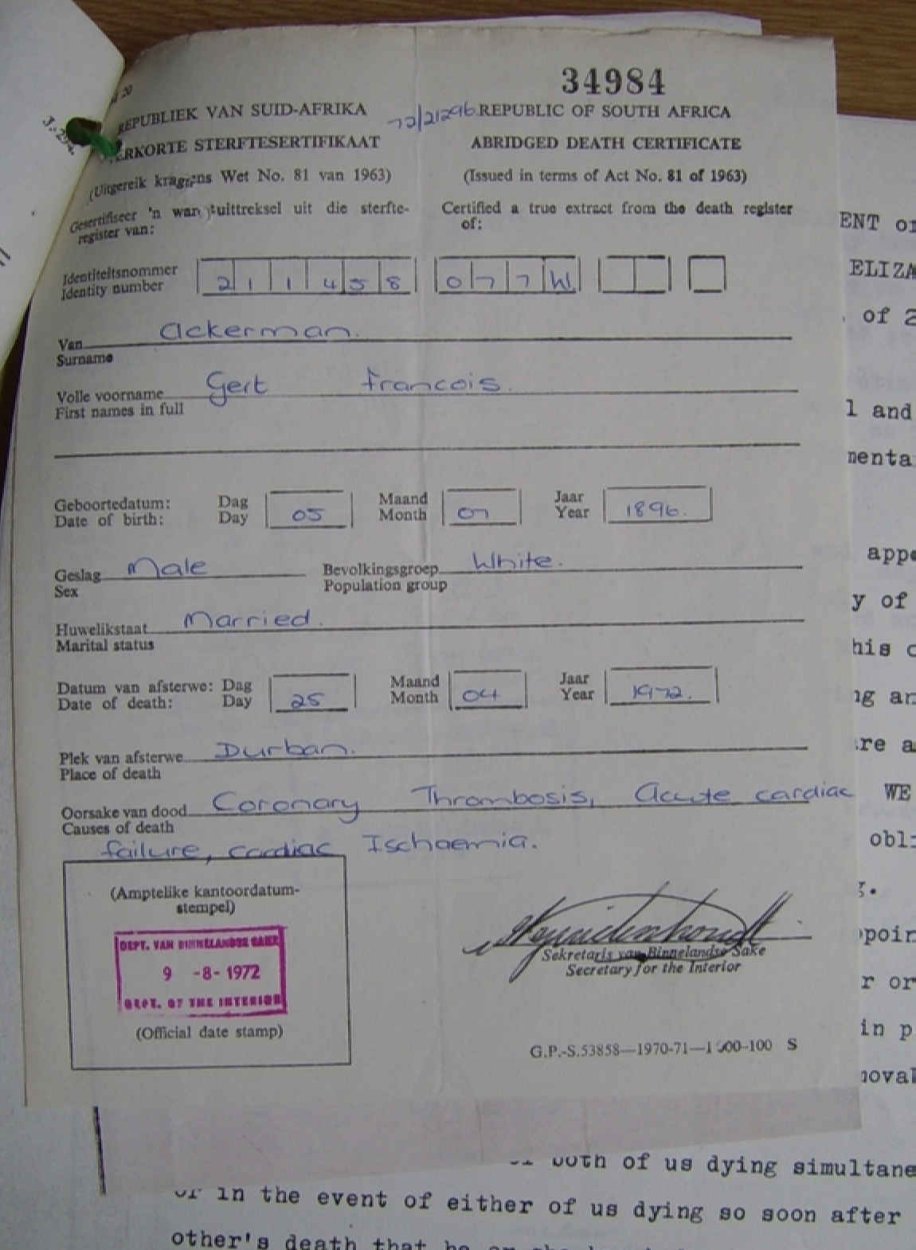 34984
REPUBLIEK VAN SUID-AFRIKA
72/21296 REPUBLIC OF SOUTH AFRICA
STERFTESERTIFIKAAT
ABRIDGED DEATH CERTIFICATE
(Uitgereik kragtens Wet No. 81 van 1963)
(Issued in terms of Act No. 81 of 1963)
Gesertifiseer 'n ware uittreksel uit die sterfte-
register van:
Certified a true extract from the death register
of:
Identiteitsnommer
Identity number
211458 077W
Van Ackerman.
Surname
Volle voorname Gert Francois.
First names in full
Geboortedatum: Dag Maand Jaar
Date of birth: Day 05 Month 07 Year 1896.
Geslag Male Bevolkingsgroep White.
Sex Population group
Huwelikstaat Married.
Marital status
Datum van afsterwe: Dag Maand Jaar
Date of death: Day 25 Month 04 Year 1972.
Plek van afsterwe Durban.
Place of death
Oorsake van dood Coronary Thrombosis, Acute cardiac
Causes of death
failure, cardiac Ischaemia.
(Amptelike kantoordatum-
stempel)
DEPT. VAN BINNELANDSE SAKE
9 -8-1972
DEPT. OF THE INTERIOR
(Official date stamp)
Sekretaris van Binnelandse Sake
Secretary for the Interior
G.P.-S.53858—1970-71—1 00-100 S
ENT
ELIZA
of 2
and
menta
appe
y of
his
re a
WE
obli
ppoin
r or
in p
noval
both of us dying simultane
or in the event of either of us dying so soon after
other's death that he or she